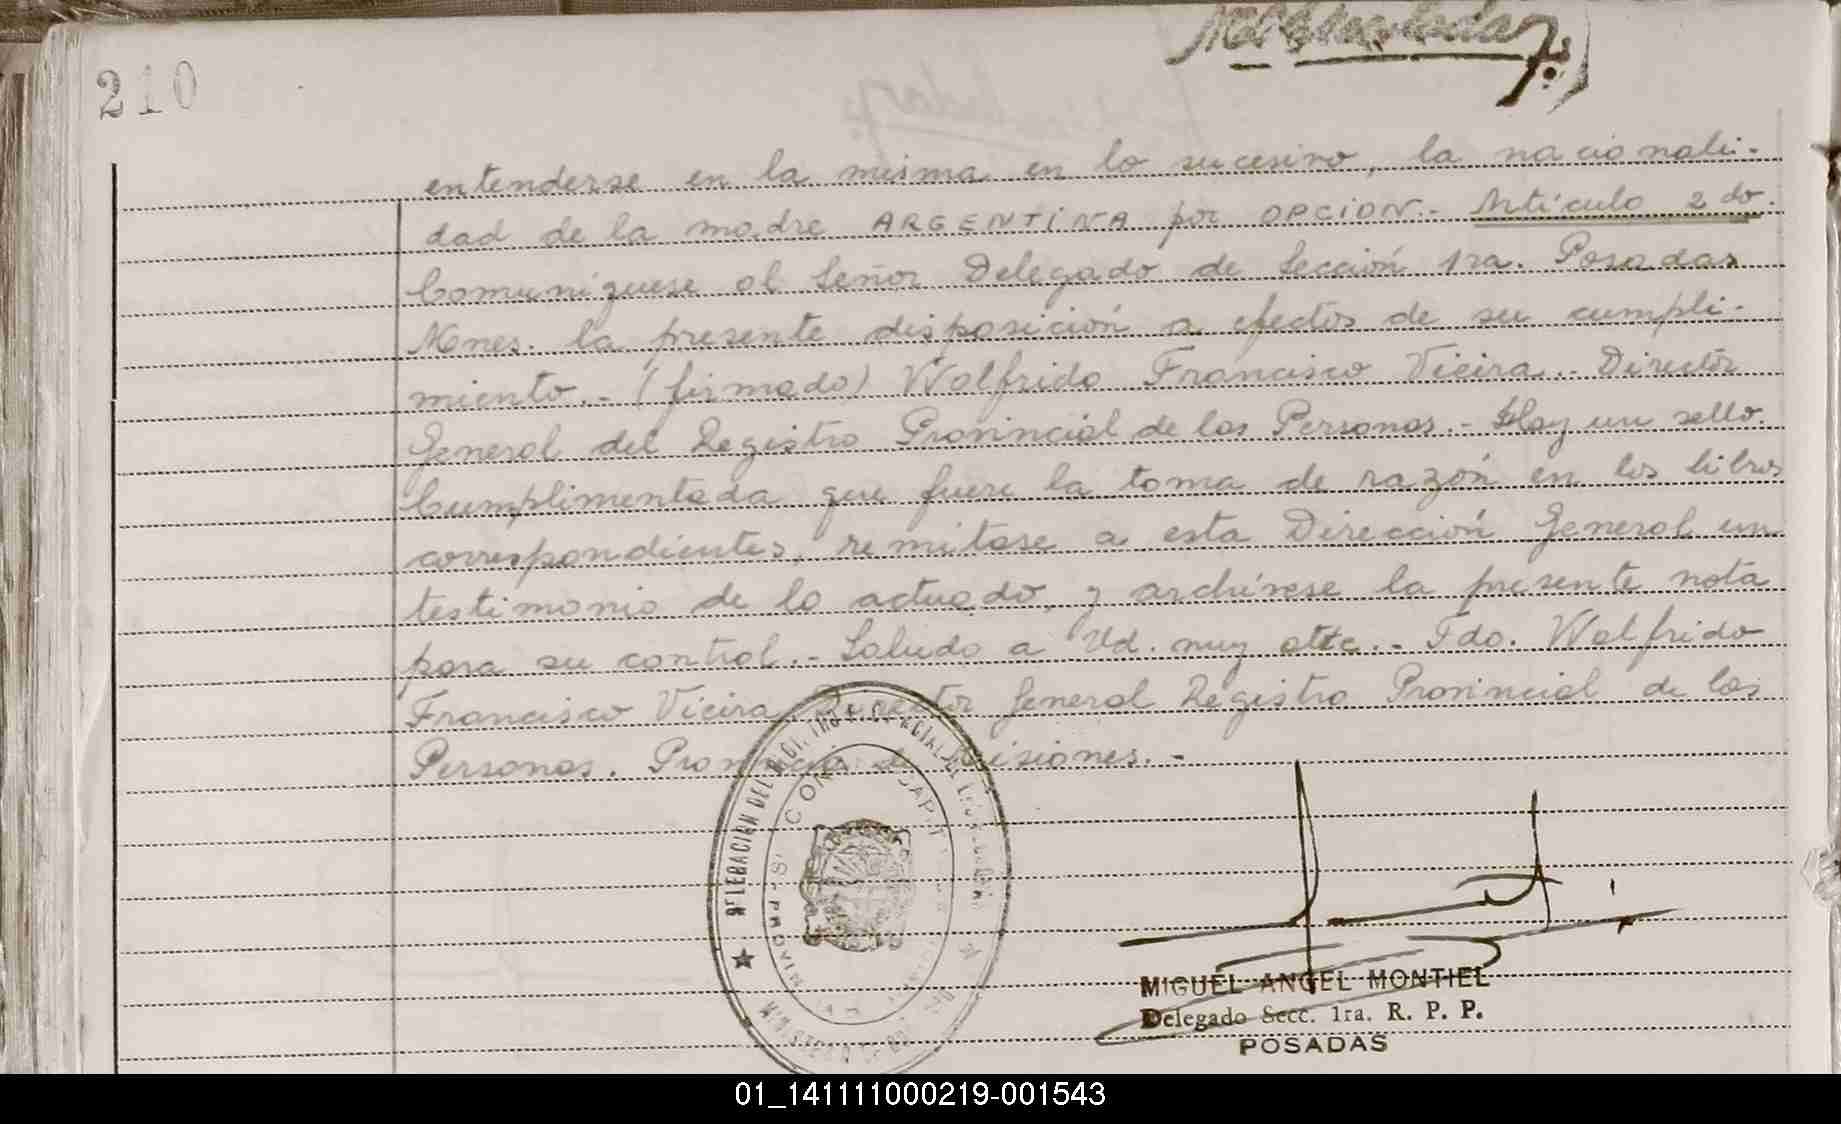 210
entenderse en la misma en lo sucesivo, la nacionali-
dad de la madre ARGENTINA por OPCION.- Artículo 2do.
Comuníquese al Señor Delegado de Sección 1ra. Posadas
Mnes. la presente disposición a efectos de su cumpli-
miento.- (firmado) Wolfrido Francisco Vieira.- Director
General del Registro Provincial de las Personas.- Hay un sello.
Cumplimentada que fuere la toma de razón en los libros
correspondientes, remítase a esta Dirección General un
testimonio de lo actuado, y archívese la presente nota
para su control.- Saludo a Ud. muy atte.- Fdo. Wolfrido
Francisco Vieira Director General Registro Provincial de las
Personas. Provincia de Misiones.-
MIGUEL ANGEL MONTIEL
Delegado Secc. 1ra. R. P. P.
POSADAS
01_141111000219-001543